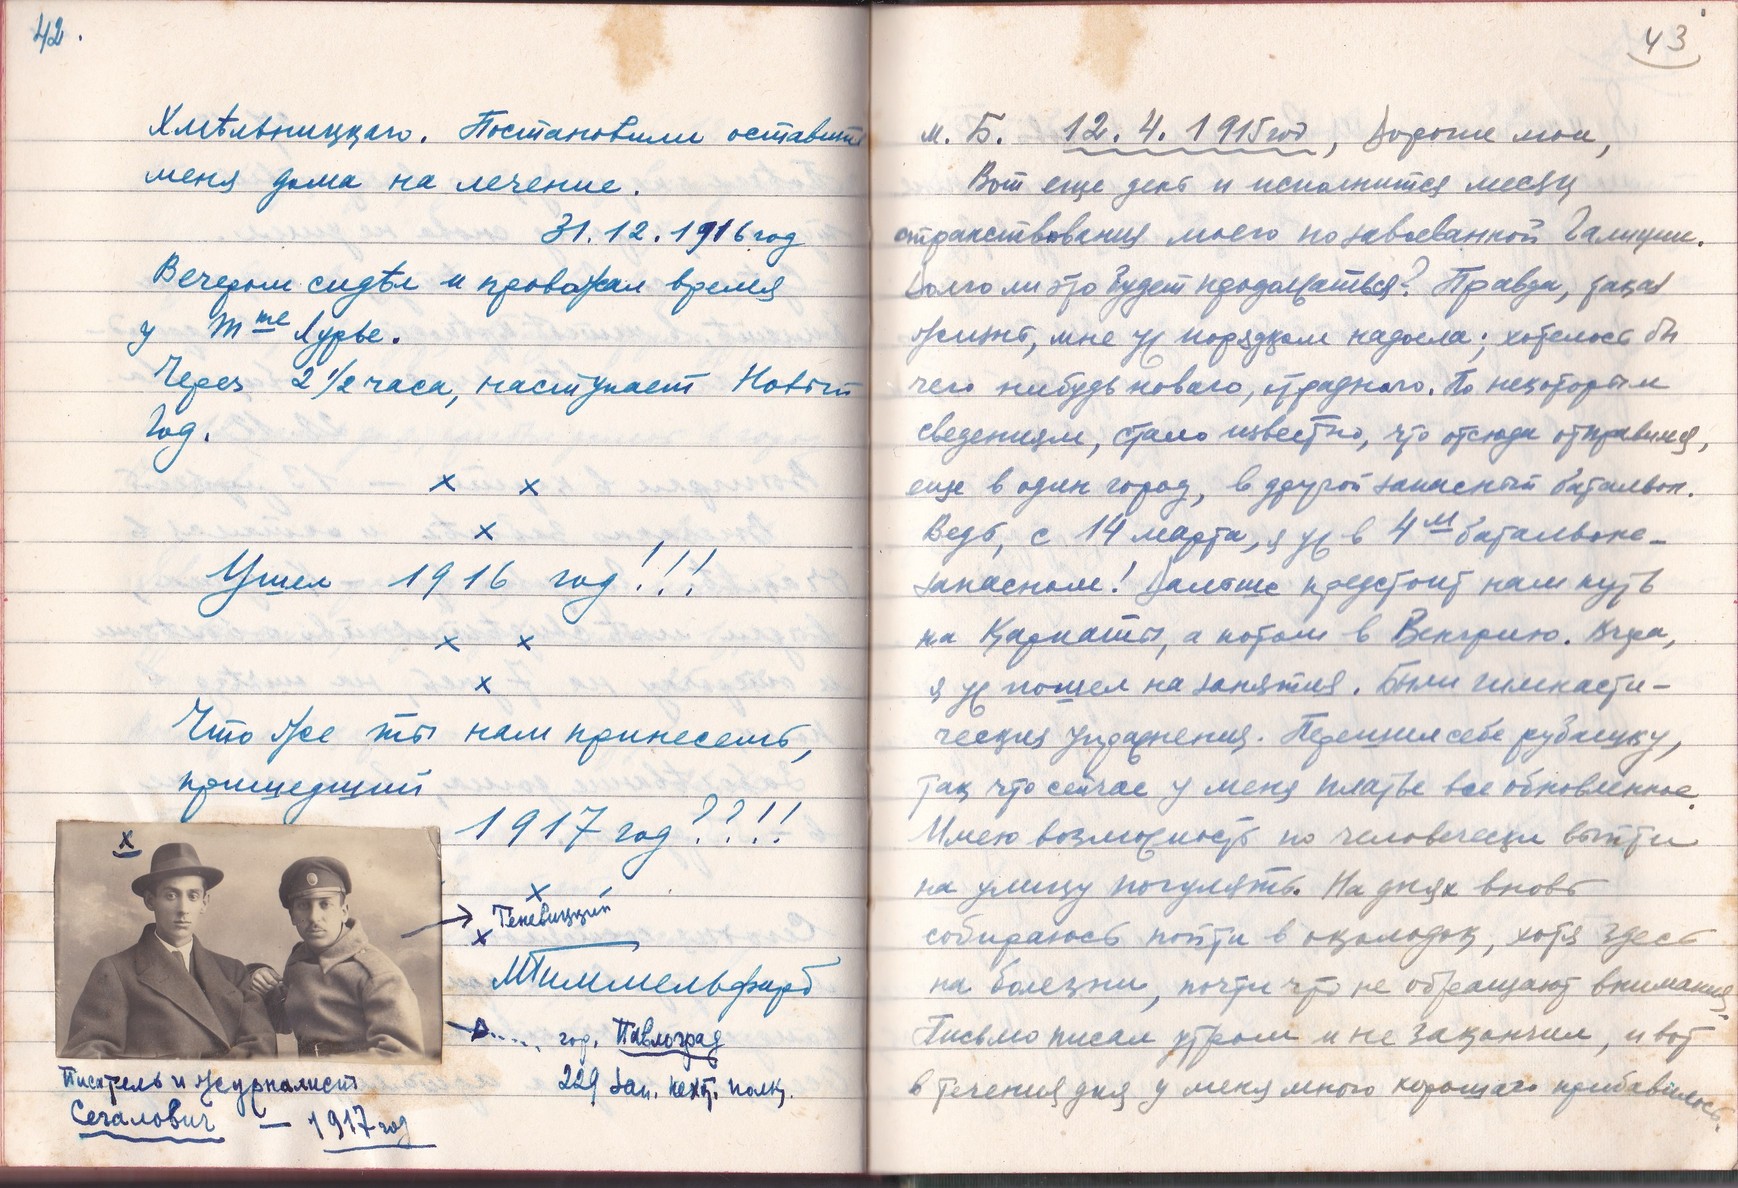 42.
Хмѣльницкаго. Постановили оставить
меня дома на лечение.
31.12.1916 год
Вечером сидѣл и провожал время
у Mme Лурье.
Через 2 1/2 часа, наступает Новый
Год.
x x
x
Ушел – 1916 год!!!
x x
x
Что же ты нам принесешь,
пришедший
1917 год??!!
x
x
Теневицкий
x
МГиммельфарб
год. Павлоград
229 Зап. пехт. полк.
Писатель и журналист
Сегалович – 1917 год
43
м. Б. 12.4.1915 год, Дорогие мои,
Вот еще день и исполнится месяц
странствования моего по завоеванной Галиции.
Долго ли это будет продолжаться? Правда, такая
жизнь, мне уж порядком надоела; хотелось бы
чего нибудь новаго, отрадного. По некоторым
сведениям, стало известно, что отсюда отправимся,
еще в один город, в другой запасный батальон.
Ведь, с 14 марта, я уж в 4м батальоне –
запасном! Дальше предстоит нам путь
на Карпаты, а потом в Венгрию. Вчера,
я уж пошел на занятия. Были гимнасти-
ческия упражнения. Перешил себе рубашку,
так что сейчас у меня платье все обновленное.
Имею возможность по человечески выйти
на улицу погулять. На днях вновь
собираюсь пойти в околодок, хотя здесь
на болезни, почти что не обращают внимания.
Письмо писал утром и не закончил, и вот
в течения дня у меня много хорошаго прибавилось.